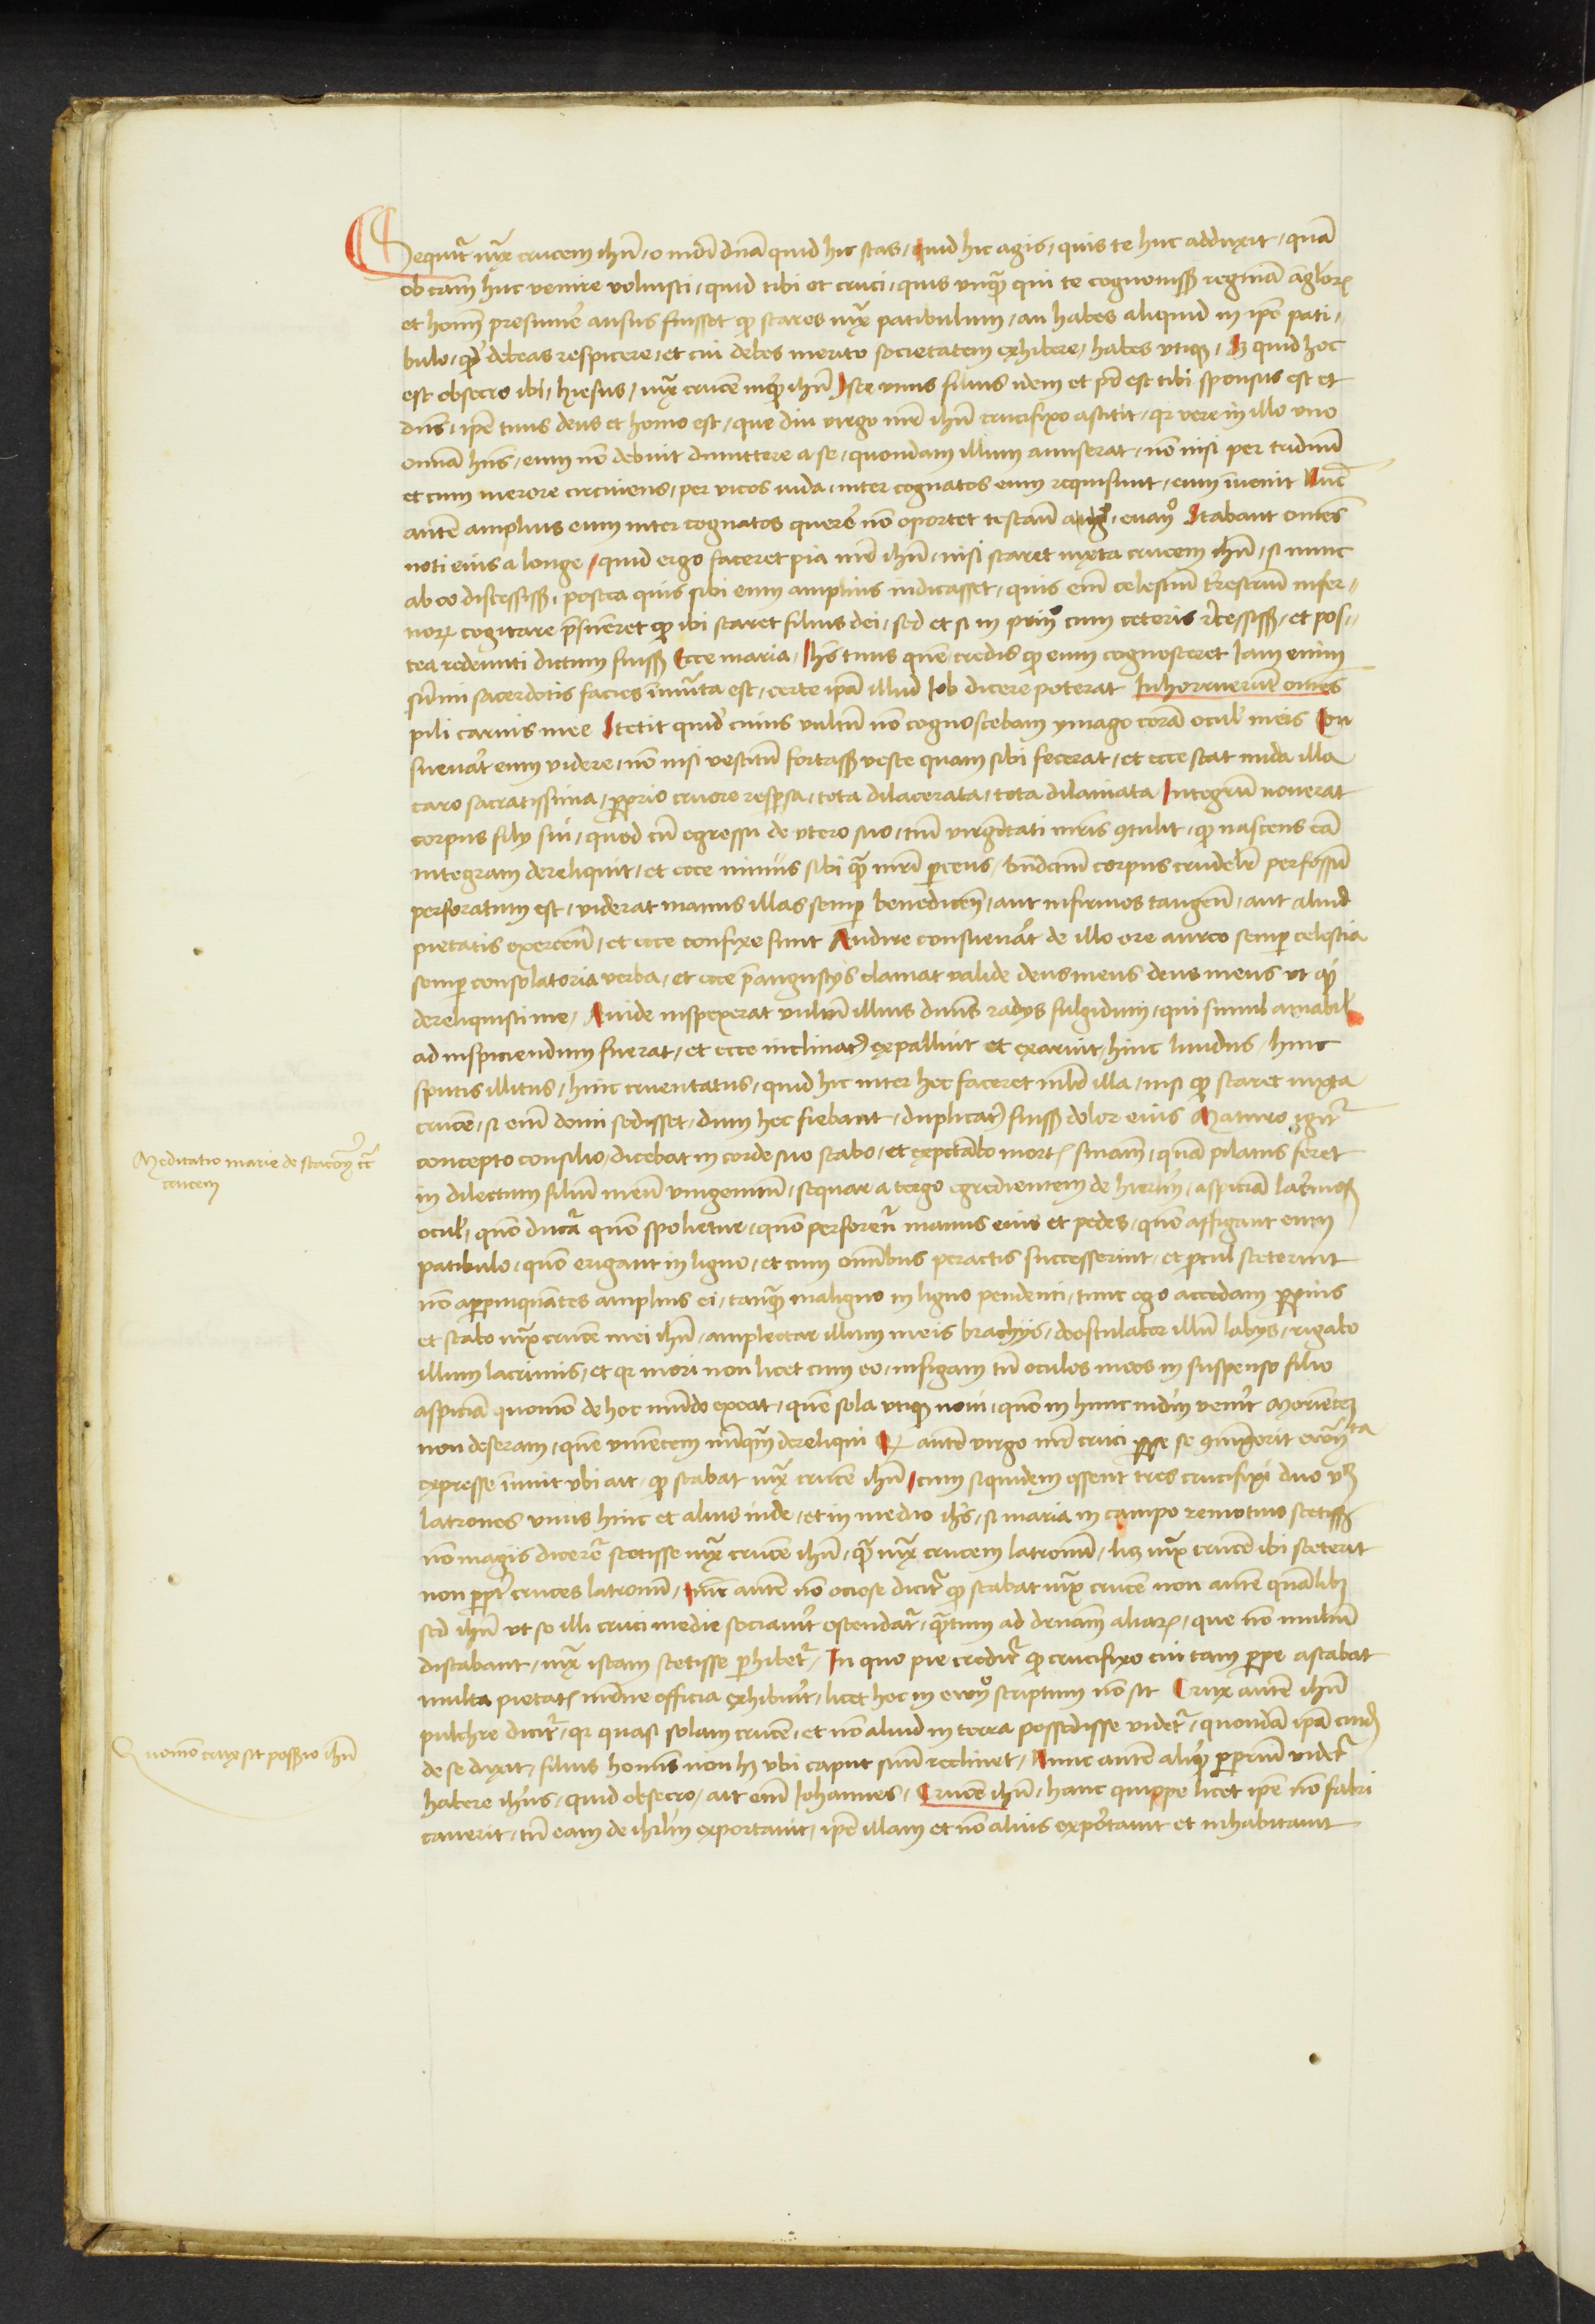 Sequit᷑ iux̃ crucem ihũ / o mũdi dña quid hic stas / quid hic agis / quis te huc adduxit / quã
ob cam̃ huc venire voluisti / quid tibi et cruci / quis vnq̃ qui te cognouiss reginã ãglor᷑
et homĩ presumẽ ausus fuisset q̃ stares iux̃ patibulum / an habes aliquid in ip̃o pati /
bulo / qđ debeas respicere / et cui debes merito societatem exhibere / habes vtiq / sꝫ quid hoc
est obsecro ibi / hiesus / iux̃ crucẽ inq̃ ihũ Iste vnus filius idem et pr̃ est tibi sponsus est et
dñs / ip̃e tuus deus et homo est / que diu virgo mr̃ ihũ crucifixo astitit / qꝛ vere in illo vno
omnia hñs / eum nõ debuit dimittere a se / quondam illum amiserat / nõ nisi per triduũ
et cum merore circuiens / per vicos iuda / inter cognatos eum requisiuit / eum inuenit Nũc
autẽ amplius eum inter cognatos querẽ nõ oportet testañ euanͦ Stabant omẽs
noti eius a longe / quid ergo faceret pia mr̃ ihũ / nisi staret iuxta crucem ihũ / si nunc
ab eo discessiss / postea quis sibi eum amplius indicasset / quis em̃ celestiũ tr̃estriũ infer /
norꝝ cogitare p̃sumeret q̃ ibi staret filius dei / sed et si in prinͦ cum ceteris recessiss / et pos /
tea redeunti dictum fuiss Ecce maria / Ihs tuus quẽ credis q̃ eum cognosceret Iam enim
sũmi sacerdotis facies ĩmutata est / certe ip̃a illud Iob dicere poterat Inhorruerũt omẽs
pili carnis mee Stetit quid̃ cuius vultũ nõ cognoscebam ymago corã ocul̃ meis Con
sueuat̃ eum videre / non nisi vestitũ fortass veste quam sibi fecerat / et ecce stat nuda illa
caro sacratissima / prop̃rio cruore respersa / tota dilacerata / tota dilaniata Integrũ nouerat
corpus filij sui / quod cũ egressu de vtero suo / tm̃ virgĩtati mr̃is 9tulit / q̃ nascens eã
integram dereliquit / et ecce minus sibi q̃ mr̃i parcens / bñdictũ corpus crudelr̃ perfossũ
perforatum est / viderat manus illas semper benedicen̄ / aut infirmos tangen̄ / aut aliud
pietatis exercen̄ / et ecce confixe sunt Audire consueuat̃ de illo ore aureo semper celestia
semper consolatoria verba / et ecce p̃ angustijs clamat valide deus meus deus meus vt qͥd
dereliquisti me / Auide inspexerat vultũ illius diuis radijs fulgidum / qui simul amabil̃
ad inspiciendum fuerat / et ecce inclinat9 expalluit et exaruit / hinc liuidus / hinc
sputis illitus / hinc cruentatus / quid hic inter hec faceret mr̃ illa / nisi q̃ staret iuxta
crucẽ / si em̃ domi sedisset / dum hec fiebant / duplicat9 fuiss dolor eius Maturo igit᷑
concepto consilio / dicebat in corde suo stabo / et expectabo mort᷑ snĩam / quã pilatus feret
in dilectum filiũ meũ vnigenitũ / sequar a tergo egredientem de hierlm̃ / aspiciã lacrimosꝭ
ocul̃ / quõ ducat᷑ quõ spolietur / quõ perforent᷑ manus eius et pedes / quõ affigant eum
patibulo / quõ erigant in ligno / et cum omĩbus peractis successerint / et procul steterint
nõ appropinquãtes amplius ei / tanq̃ maligno in ligno pendenti / tunc ego accedam propius
et stabo iux̃ crucẽ mei ihũ / amplectar illum meis brachijs / deosculabor illũ labijs / rigabo
illum lacrimis / et qꝛ mori non licet cum eo / infigam tñ oculos meos in suspenso filio
aspiciã quomõ de hoc mũdo exeat / quẽ sola vtiq noui / quõ in hunc mũdũ venit Moriẽtem
non deseram / quẽ viuentem nũquam dereliqui Qꝛ autẽ virgo mr̃ cruci prope se 9iunxerit ewãgͭᵃ
expresse innuit vbi ait q̃ stabat iux̃ crucẽ ihũ / cum siquidem essent tres crucifixi duo vꝫ
latrones vnus hinc et alius inde / et in medio ihs̃ / si maria in campo remotius stetiss
nõ magis diceret᷑ stetisse iux̃ crucẽ ihũ / q̃ iux̃ crucem latronũ / licꝫ iux̃ crucẽ ibi steterit
non propt̃ cruces latronũ / Nũc autẽ nõ ociose dicit᷑ q̃ stabat iux̃ crucẽ non autẽ quãlibꝫ
sed ihũ vt se illi cruci medie sociauit ostendat᷑ / q̃tum ad dr̃nam̃ aliarꝝ / que nõ multũ
distabant / iux̃ istam stetisse p̃hibet᷑ / In quo pie credit᷑ q̃ crucifixo cui tam prope astabat
multa pietat᷑ mr̃ne officia exhibuit / licet hoc in ewãͦ scriptum nõ sit Crux autẽ ihũ
pulchre dicit᷑ / qꝛ quasi solam crucẽ / et nõ aliud in terra possedisse videt᷑ / quondã ip̃a
de se dixit / filius homĩs non hꝫ vbi caput suũ reclinet / Nunc autẽ aliqͥd propriũ videt᷑
habere ihũs / quid obsecro / ait em̃ Iohannes / Crucẽ ihũ / hanc quippe licet ip̃e nõ fabri
cauerit / tñ eam de ihrlm̃ exportauit / ip̃e illam et nõ alius exportauit et inhabitauit
Meditatio marie de stacõnẽ ct᷑
crucem
Quomõ crux sit possessio ihũ